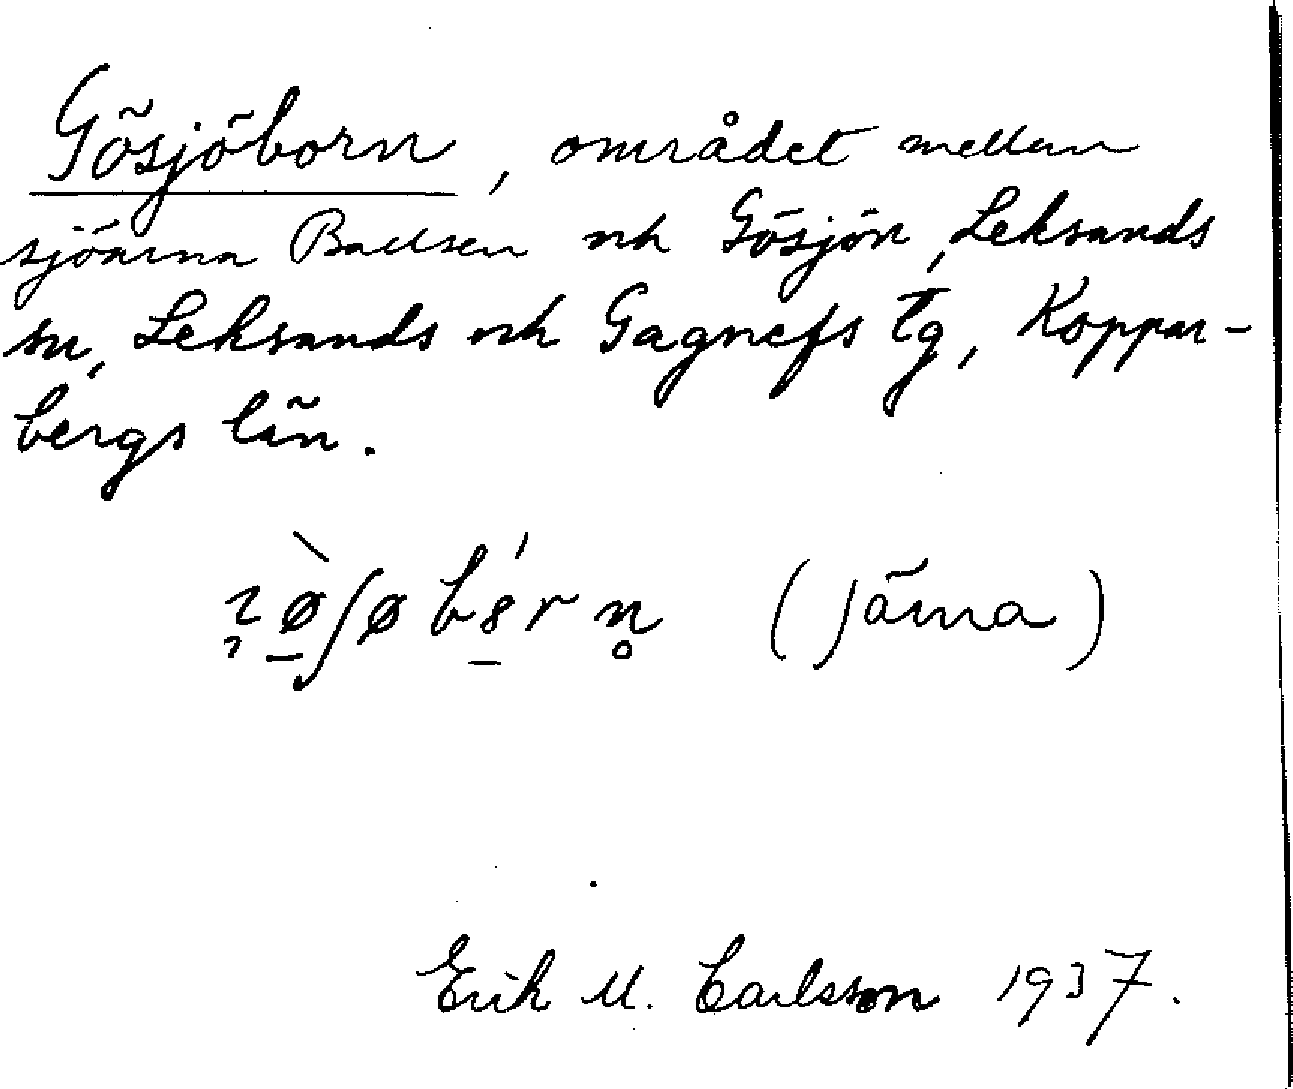 Gösjöborn, området mellan
sjöarna Ballsen och Gösjön, Leksands
sn, Leksands och Gagnefs tg, Koppar-
bergs län.
(Järna)
Erik M. Carlsson 1937.